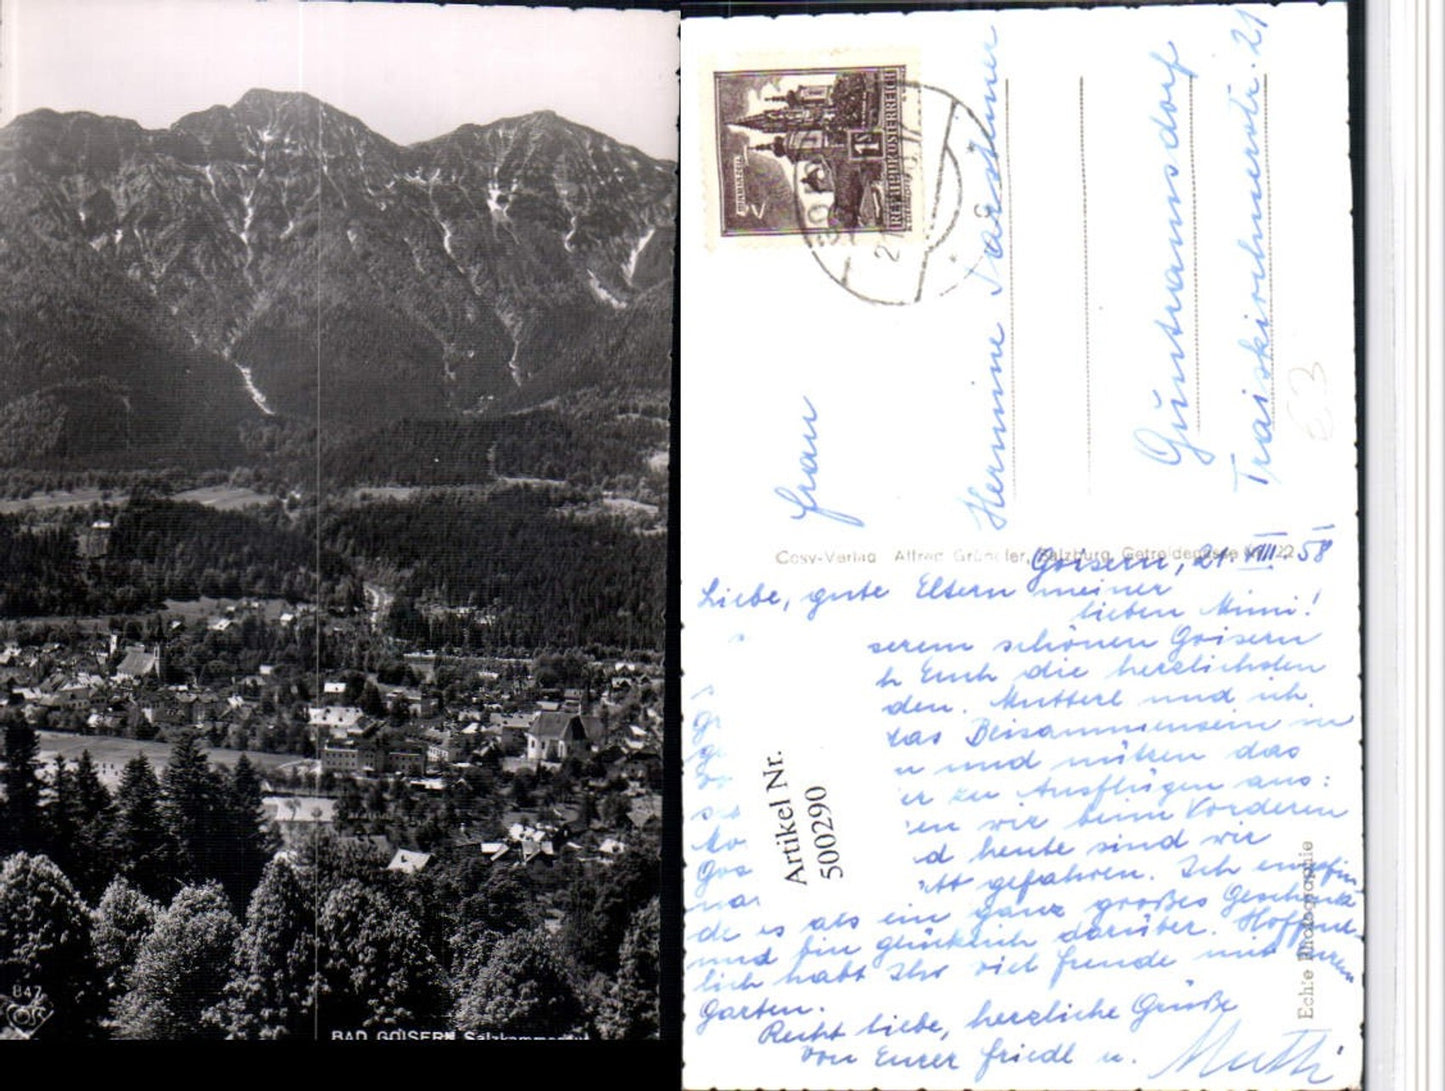 847
BAD GOISERN Salzkammergut
REPUBLIK ÖSTERREICH
Frau
Hermine
Guntramsdorf
Traiskirchnerstr. 21
E3
Cosy-Verlag Alfred Gründler, Salzburg, Getreidegasse 22
Goisern, 21. VIII. 58
Liebe, gute Eltern meiner
lieben Mimi!
serem schönen Goisern
h Euch die herzlichsten
den. Mutterl und ich
das Beisammensein
n und nützen das
er zu Ausflügen aus:
en wir beim Vorderen
d heute sind wir
att gefahren. Ich empfin-
de es als ein ganz großes Geschenk
und bin glücklich darüber. Hoffent-
lich habt Ihr viel Freude mit Eurem
Garten.
Recht liebe, herzliche Grüße
von Eurer Friedl u. Mutti
Artikel Nr.
500290
Echte Photographie